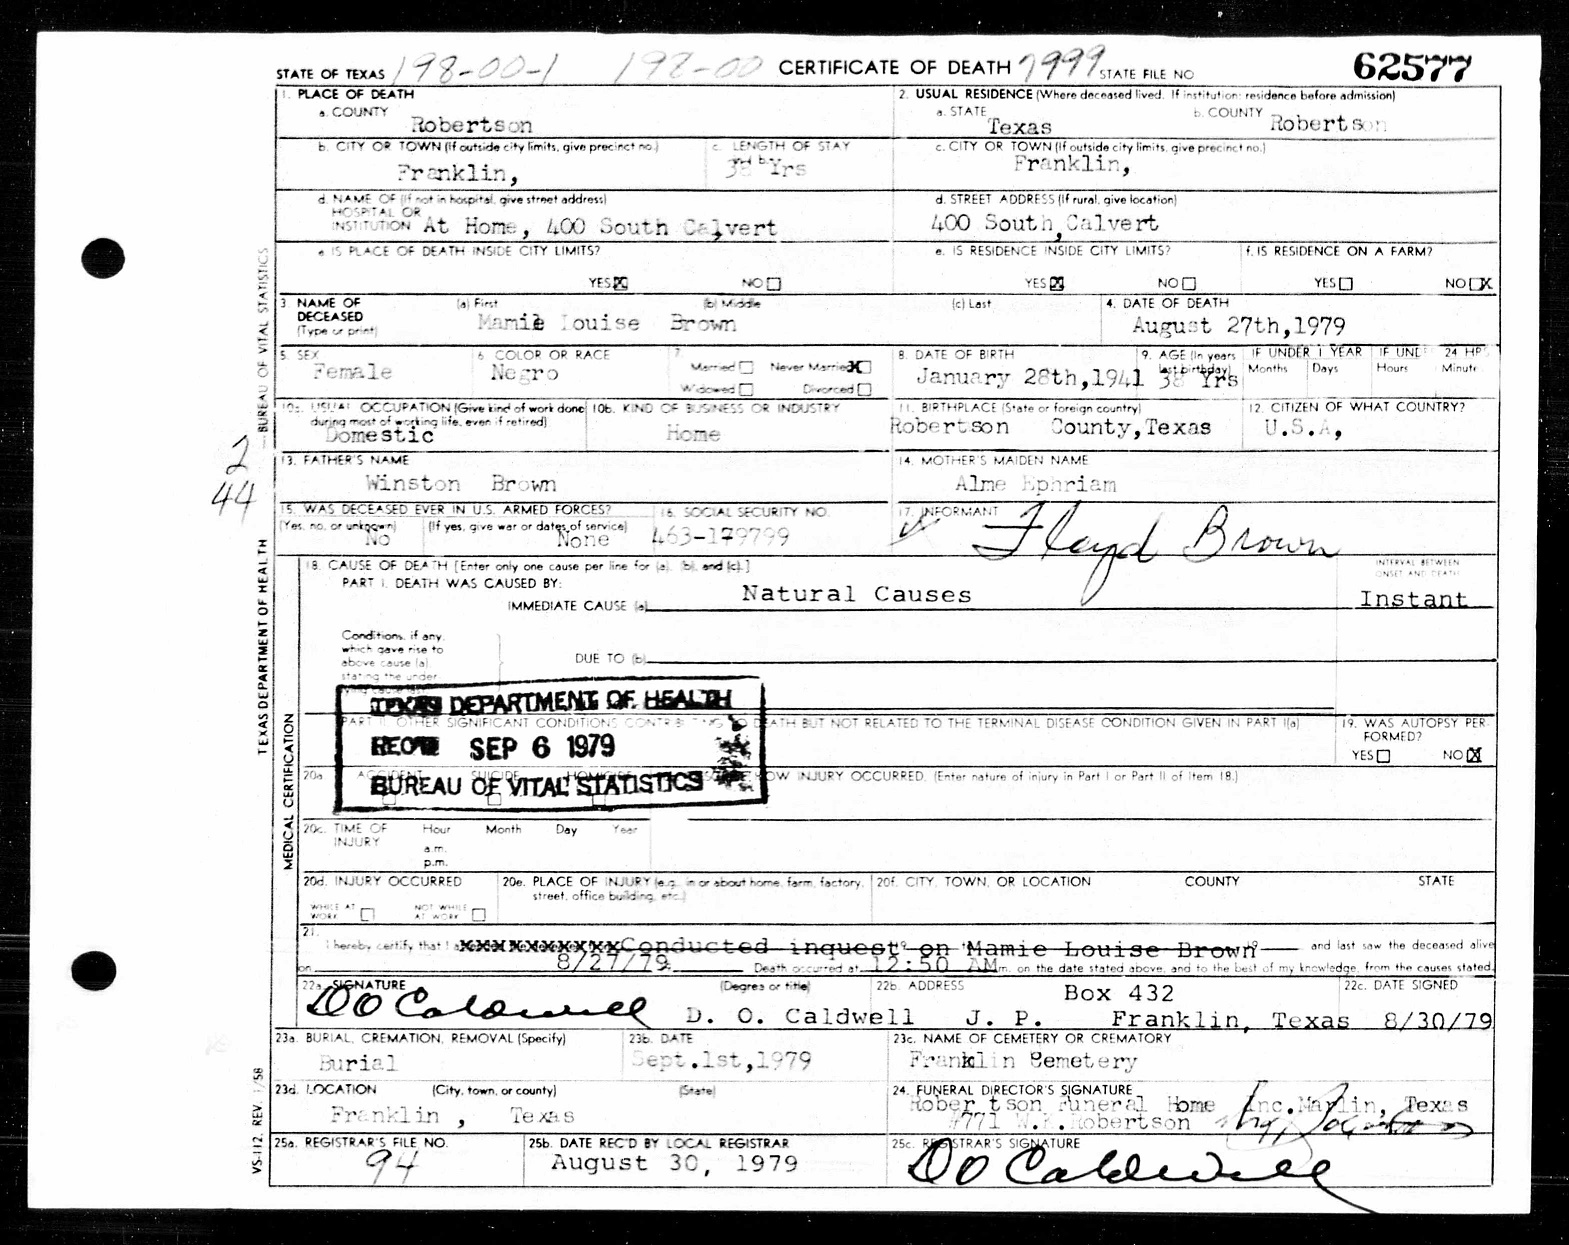 STATE OF TEXAS 198-00-1 198-00 CERTIFICATE OF DEATH 7999 STATE FILE NO 62577
1. PLACE OF DEATH
a. COUNTY Robertson
2. USUAL RESIDENCE (Where deceased lived. If institution: residence before admission)
a. STATE Texas b. COUNTY Robertson
b. CITY OR TOWN (If outside city limits, give precinct no.) Franklin,
c. LENGTH OF STAY 38 Yrs
c. CITY OR TOWN (If outside city limits, give precinct no.) Franklin,
d. NAME OF (If not in hospital, give street address)
HOSPITAL OR
INSTITUTION At Home, 400 South Calvert
d. STREET ADDRESS (If rural, give location)
400 South Calvert
e. IS PLACE OF DEATH INSIDE CITY LIMITS?
YES X NO
e. IS RESIDENCE INSIDE CITY LIMITS?
YES X NO
f. IS RESIDENCE ON A FARM?
YES NO X
3. NAME OF DECEASED (Type or print)
(a) First (b) Middle (c) Last
Mamie Louise Brown
4. DATE OF DEATH
August 27th,1979
5. SEX
Female
6. COLOR OR RACE
Negro
7. Married Never Married X
Widowed Divorced
8. DATE OF BIRTH
January 28th,1941
9. AGE (In years last birthday)
38 Yrs
IF UNDER 1 YEAR
Months Days
IF UNDER 24 HRS
Hours Minute
10a. USUAL OCCUPATION (Give kind of work done during most of working life, even if retired)
Domestic
10b. KIND OF BUSINESS OR INDUSTRY
Home
11. BIRTHPLACE (State or foreign country)
Robertson County,Texas
12. CITIZEN OF WHAT COUNTRY?
U.S.A,
13. FATHER'S NAME
Winston Brown
14. MOTHER'S MAIDEN NAME
Alme Ephriam
15. WAS DECEASED EVER IN U.S. ARMED FORCES?
(Yes, no, or unknown) (If yes, give war or dates of service)
No None
16. SOCIAL SECURITY NO.
463-179799
17. INFORMANT
Floyd Brown
18. CAUSE OF DEATH [Enter only one cause per line for (a), (b), and (c).]
PART I. DEATH WAS CAUSED BY:
IMMEDIATE CAUSE (a) Natural Causes
INTERVAL BETWEEN
ONSET AND DEATH
Instant
Conditions, if any,
which gave rise to
above cause (a)
stating the under
DUE TO (b)
TEXAS DEPARTMENT OF HEALTH
REC'D SEP 6 1979
BUREAU OF VITAL STATISTICS
PART II. OTHER SIGNIFICANT CONDITIONS CONTRIBUTING TO DEATH BUT NOT RELATED TO THE TERMINAL DISEASE CONDITION GIVEN IN PART I(a)
19. WAS AUTOPSY PER-
FORMED?
YES NO X
20a. ACCIDENT SUICIDE HOMICIDE
HOW INJURY OCCURRED. (Enter nature of injury in Part I or Part II of Item 18.)
20c. TIME OF INJURY Hour Month Day Year
a.m.
p.m.
20d. INJURY OCCURRED
WHILE AT WORK NOT WHILE AT WORK
20e. PLACE OF INJURY (e.g., in or about home, farm, factory, street, office building, etc.)
20f. CITY, TOWN, OR LOCATION COUNTY STATE
21.
I hereby certify that I xxxxxxxxxxx Conducted inquest on Mamie Louise Brown and last saw the deceased alive
on 8/27/79 Death occurred at 12:50 AM m. on the date stated above, and to the best of my knowledge, from the causes stated.
22a. SIGNATURE (Degree or title)
D O Caldwell D. O. Caldwell J. P.
22b. ADDRESS Box 432
Franklin, Texas
22c. DATE SIGNED
8/30/79
23a. BURIAL, CREMATION, REMOVAL (Specify)
Burial
23b. DATE
Sept.1st,1979
23c. NAME OF CEMETERY OR CREMATORY
Franklin Cemetery
23d. LOCATION (City, town, or county) (State)
Franklin , Texas
24. FUNERAL DIRECTOR'S SIGNATURE
Robertson Funeral Home Inc.Marlin, Texas
#771 W.R.Robertson
25a. REGISTRAR'S FILE NO.
94
25b. DATE REC'D BY LOCAL REGISTRAR
August 30, 1979
25c. REGISTRAR'S SIGNATURE
D O Caldwell
TEXAS DEPARTMENT OF HEALTH — BUREAU OF VITAL STATISTICS
MEDICAL CERTIFICATION
VS-112 REV. 1/58
2
44